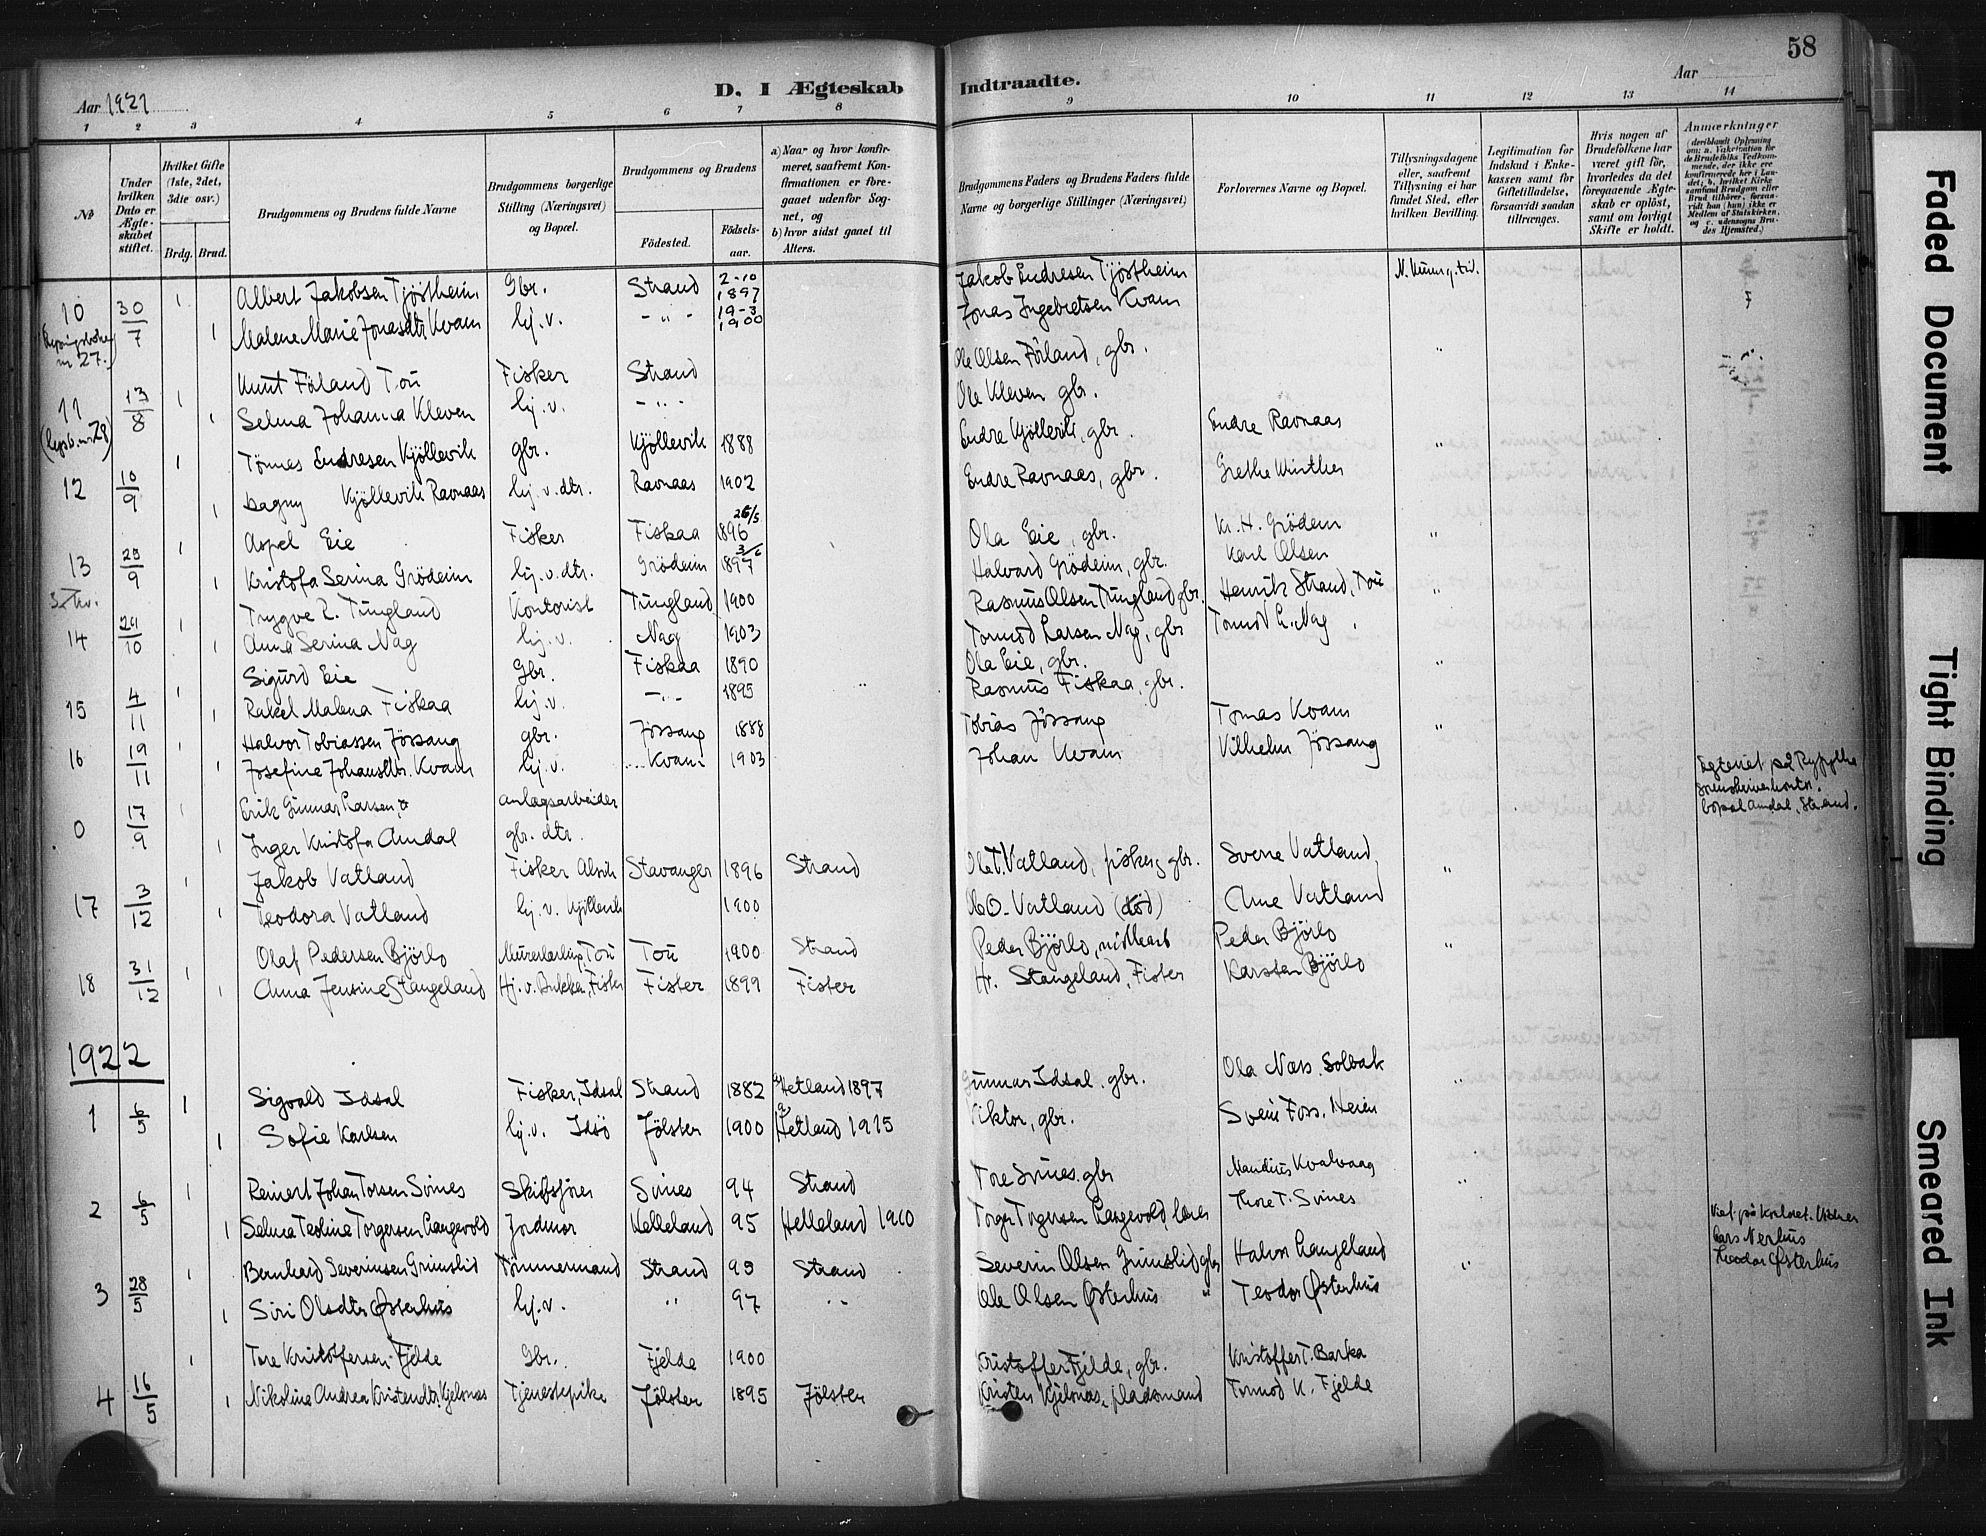 58
Aar 1921
D. I Ægteskab Indtraadte.
Aar
1 2 3 4 5 6 7 8 9 10 11 12 13 14
No
Under hvilken Dato er Ægteskabet stiftet.
Hvilket Gifte (1ste, 2det, 3die osv.)
Brdg. Brud.
Brudgommens og Brudens fulde Navne
Brudgommens borgerlige Stilling (Næringsvei) og Bopæl.
Brudgommens og Brudens
Fødested. Fødselsaar.
a) Naar og hvor konfirmeret, saafremt Konfirmationen er foregaaet udenfor Sognet, og
b) hvor sidst gaaet til Alters.
Brudgommens Faders og Brudens Faders fulde Navne og borgerlige Stillinger (Næringsvei)
Forlovernes Navne og Bopæl.
Tillysningsdagene eller, saafremt Tillysning ei har fundet Sted, efter hvilken Bevilling.
Legitimation for Indskud i Enkekassen samt for Giftetilladelse, forsaavidt saadan tiltrænges.
Hvis nogen af Brudefolkene har været gift før, hvorledes da det foregaaende Ægteskab er opløst, samt om lovligt Skifte er holdt.
Anmærkninger
10 30/7 1 Albert Jakobsen Tjöstheim Gbr. Strand 2-10 1897 Jakob Endresen Tjöstheim
1 Malene Marie Jonasdtr Kvam hj.v. -"- 19-3 1900 Jonas Ingebretsen Kvam
nr 27.
11 13/8 1 Knut Förland Tou Fisker Strand Ole Olsen Förland, gbr.
1 Selma Johanna Kleven hj.v. -"- Ole Kleven gbr.
12 10/9 1 Tönnes Endresen Kjöllevik gbr. Kjöllevik 1888 Endre Kjöllevik, gbr. Endre Ravnaas "
1 Dagny Kjöllevik Ravnaas hj.v.dtr. Ravnaas 1902 Endre Ravnaas, gbr. Grethe Winther
13 1 Aspel Eie Fisker Fiskaa 26/5 1896 Ola Eie, gbr. Kr. H. Grödem "
1 Kristofa Serina Grödeim hj.v.dtr. Grödeim 3/6 1897 Halvard Grödeim, gbr. Karl Olsen
14 29/10 1 Trygve R. Tungland Kontorist Tungland 1900 Rasmus Olsen Tungland gbr. Henrik Strand, Tou "
1 Anna Serina Nag hj.v. Nag 1903 Tormod Larsen Nag, gbr Tormod L. Nag
15 4/11 1 Sigurd Eie Gbr. Fiskaa 1890 Ola Eie, gbr. "
1 Rakel Malena Fiskaa hj.v. -"- 1895 Rasmus Fiskaa, gbr.
16 19/11 1 Halvor Tobiassen Jörsang gbr. Jörsang 1888 Tobias Jörsang Tomas Kvam "
1 Josefine Johansdtr. Kvam hj.v. Kvam 1903 Johan Kvam Vilhelm Jörsang
0 17/9 1 Erik Gunnar Larsen & anlagsarbeider Egteviet på Ryfylke sorenskriverkontor. bopæl Amdal, Strand.
1 Inger Kristofa Amdal gbr. dtr.
17 3/12 1 Jakob Vatland Fisker Alsvik Stavanger 1896 Strand Ole T. Vatland, fisker, gbr. Sverre Vatland, "
1 Teodora Vatland hj.v. Kjöllevik 1900 Ole O. Vatland (död) Arne Vatland
18 31/12 1 Olaf Pedersen Björlo Tou Tou 1900 Strand Peder Björlo, Peder Björlo "
1 Anna Jensine Stangeland Hj.v. Fister Fister 1899 Fister Hr. Stangeland, Fister Karsten Björlo
1922
1 6/5 1 Sigvald Idsal Fisker, Idsal Strand 1882 a) Hetland 1897 Gunnar Idsal. gbr. Ola Næs. Solbak "
1 Sofie Karlsen hj.v. Idsö Jölster 1900 a) Hetland 1915 Viktor, gbr. Svein Foss. Heien
2 6/5 1 Reinert Johan Torsen Svines Skibsförer Svines 94 Strand Tore Svines gbr Mandius Kvalvaag "
1 Selma Teoline Torgersen Langevold Jordmor Helleland 95 Helleland 1910 Torger Torgersen Langevold lærer Thore T. Svines
3 28/5 1 Bernhard Severinsen Grimslid Tömmermand Strand 95 Strand Severin Olsen Grimslid gbr Halvor Langeland "
Lars Nerhus
Teodor Østerhus
1 Siri Olsdtr Østerhus hj.v. " 97 " Ole Olsen Østerhus " Teodor Østerhus
4 16/5 1 Tore Kristoffersen Fjelde Gbr. Fjelde 1900 Kristoffer Fjelde, gbr. Kristoffer T. Barka
1 Nikoline Andrea Kristendtr. Kjelsnæs Tjenestepike Jölster 1895 Jölster Kristen Kjelsnæs, pladsmand Tormod K. Fjelde
Faded Document
Tight Binding
Smeared Ink